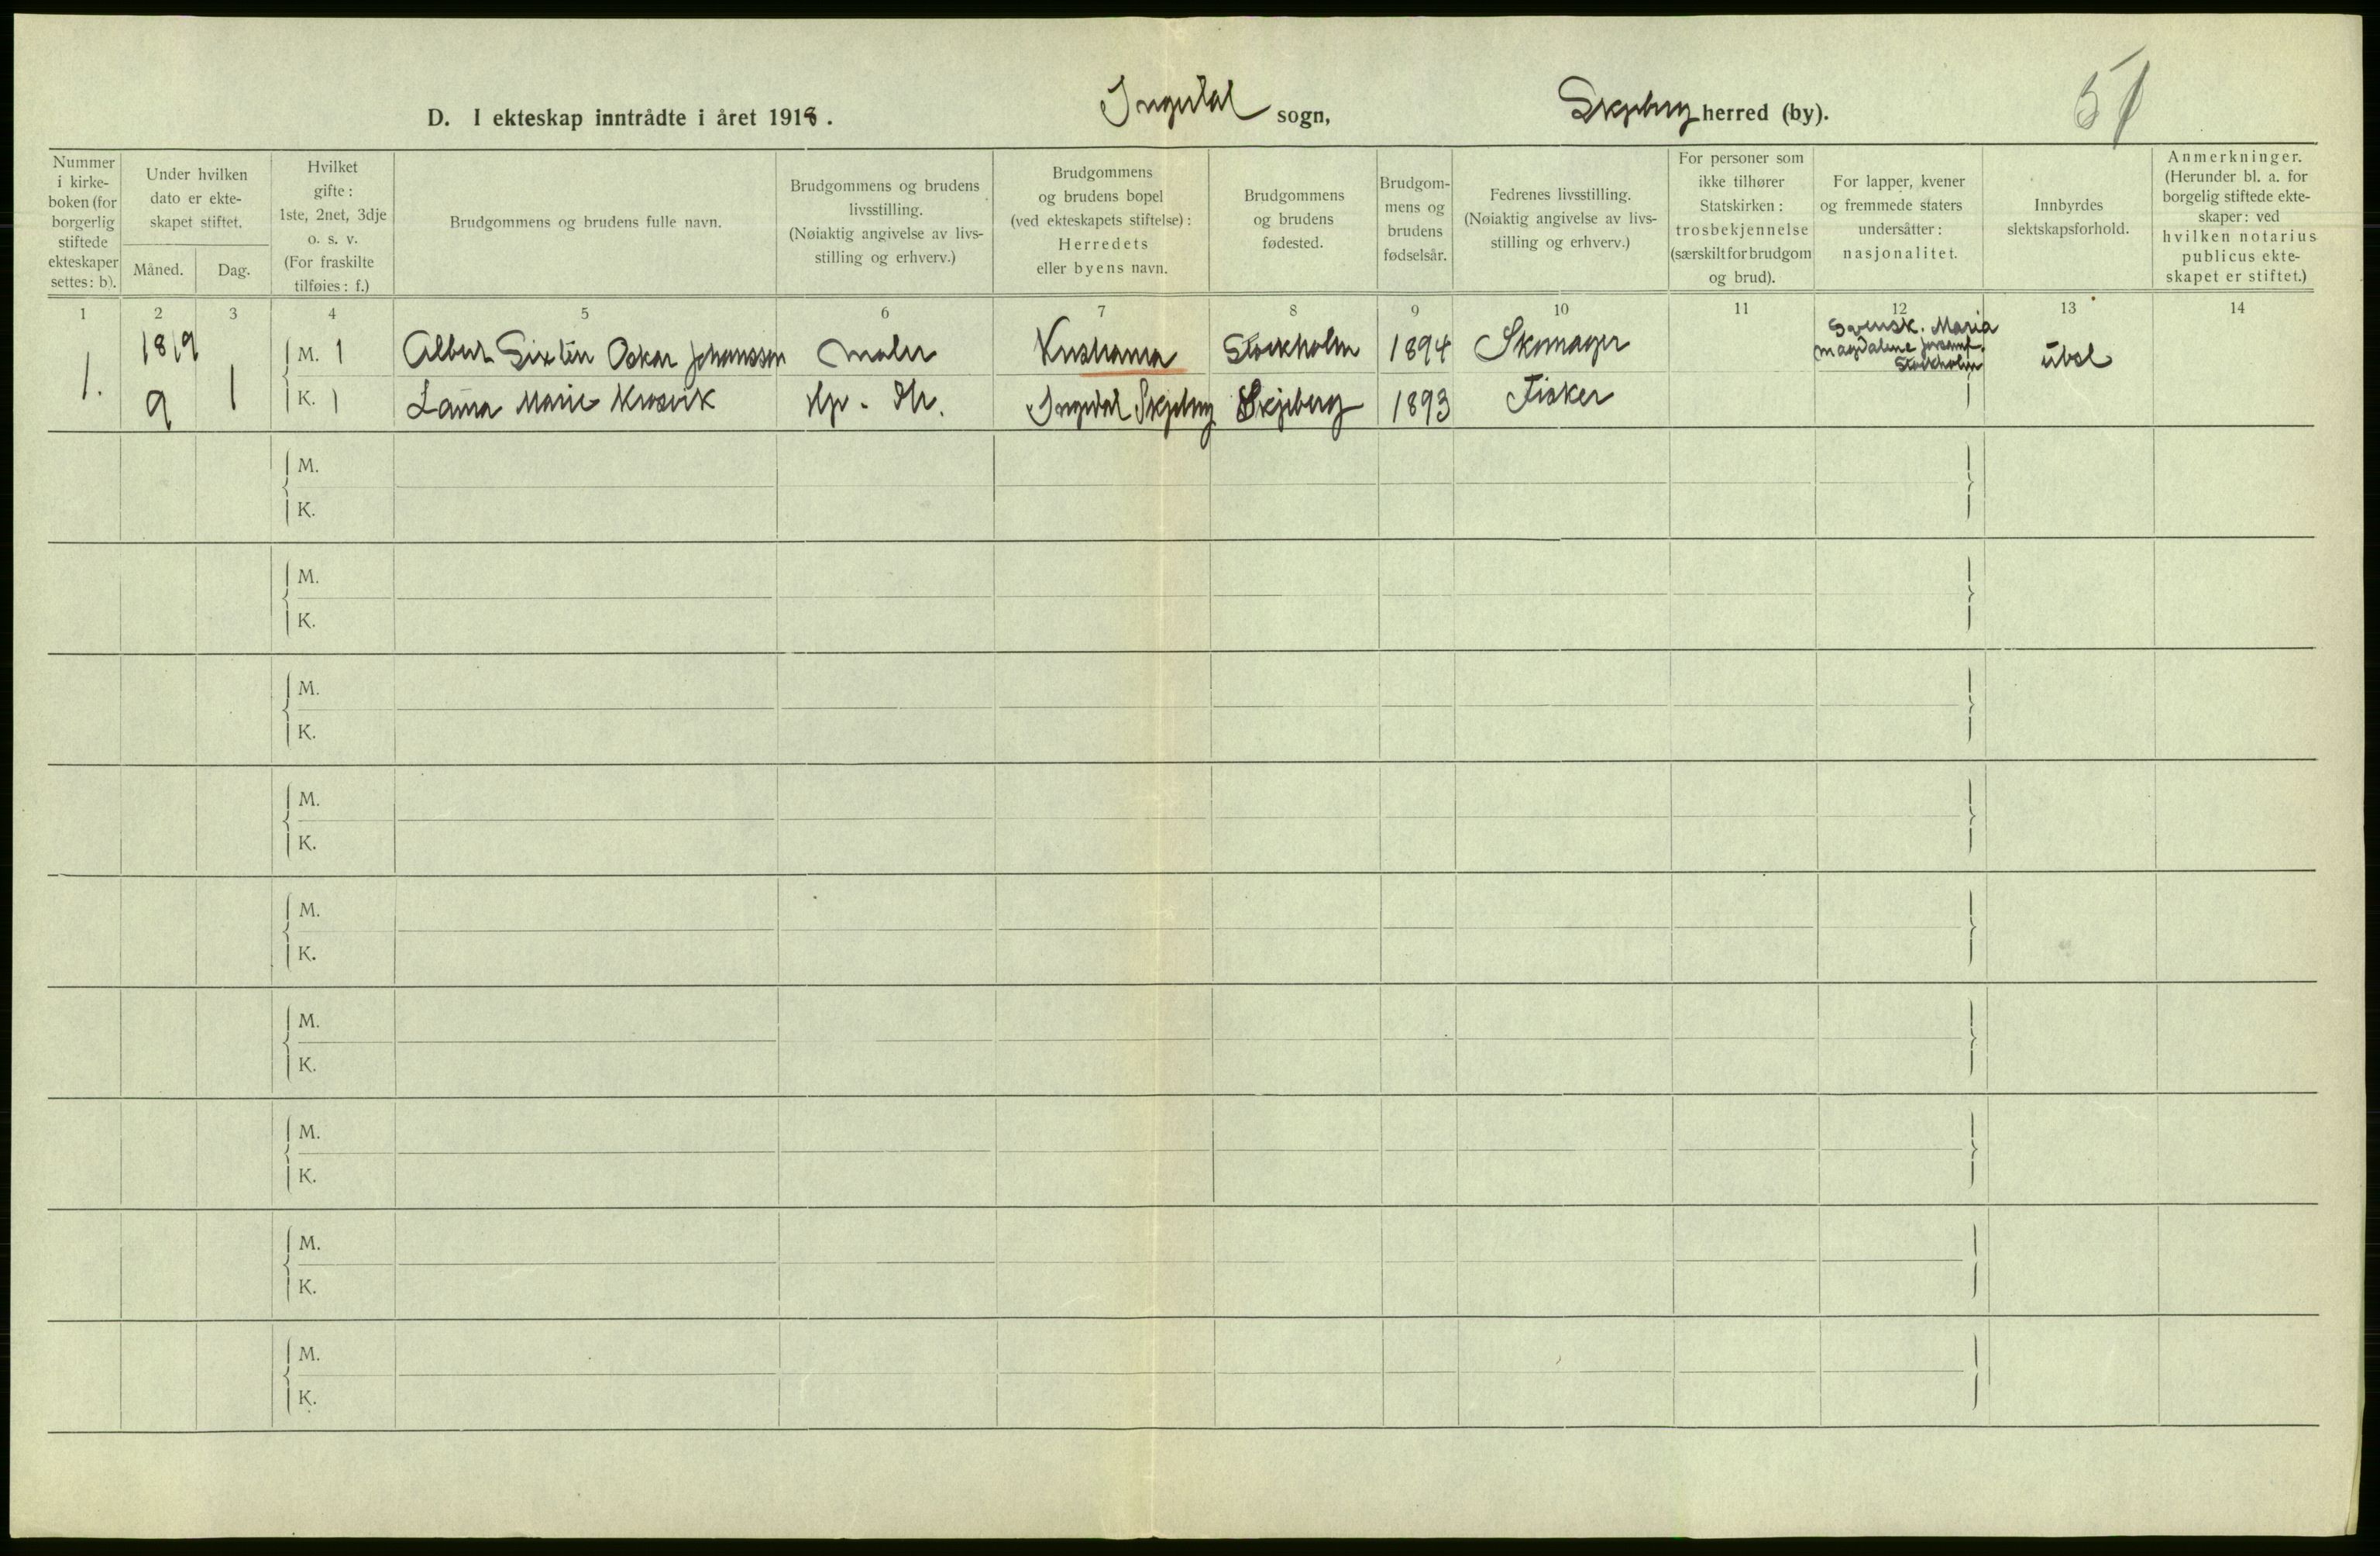 D. I ekteskap inntrådte i året 1918. Ingedal sogn, Skjeberg herred (by). 51
Nummer i kirke- boken (for borgerlig stiftede ekteskaper settes: b).
Under hvilken dato er ekte- skapet stiftet.
Måned. Dag.
Hvilket gifte: 1ste, 2net, 3dje o. s. v. (For fraskilte tilføies: f.)
Brudgommens og brudens fulle navn.
Brudgommens og brudens livsstilling. (Nøiaktig angivelse av livs- stilling og erhverv.)
Brudgommens og brudens bopel (ved ekteskapets stiftelse): Herredets eller byens navn.
Brudgommens og brudens fødested.
Brudgom- mens og brudens fødselsår.
Fedrenes livsstilling. (Nøiaktig angivelse av livs- stilling og erhverv.)
For personer som ikke tilhører Statskirken: trosbekjennelse (særskilt for brudgom og brud).
For lapper, kvener og fremmede staters undersåtter: nasjonalitet.
Innbyrdes slektskapsforhold.
Anmerkninger. (Herunder bl. a. for borgelig stiftede ekte- skaper: ved hvilken notarius publicus ekte- skapet er stiftet.)
1 2 3 4 5 6 7 8 9 10 11 12 13 14
1. 18/9 M. 1 Albert Sixten Oskar Johansson maler Kristiania Stockholm 1894 Skomager Svensk. Maria
Magdalene
Stockholm
ubsl
9 1 K. 1 Laura Marie Krosvik Skjeberg 1893 Fisker
Ingedal Skjeberg
M.
K.
M.
K.
M.
K.
M.
K.
M.
K.
M.
K.
M.
K.
M.
K.
M.
K.